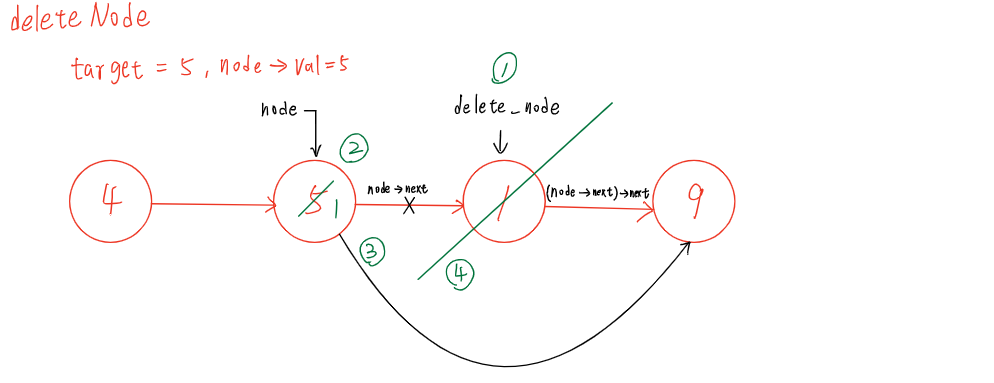 delete Node
target = 5, node → val=5
①
node
delete_node
②
4
5 1
node → next
X
1
(node → next) → next
9
③
④